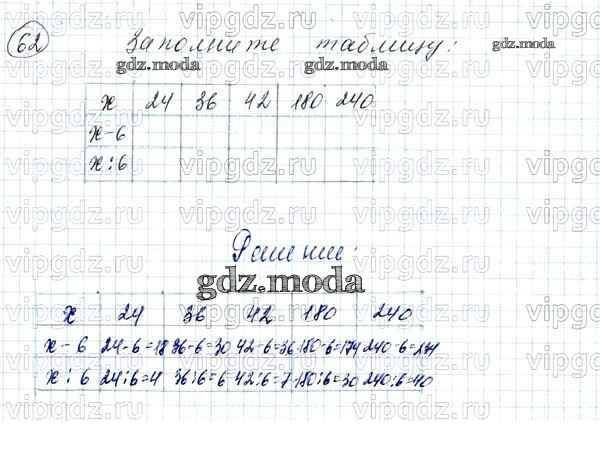 62 Заполните таблицу:
x 24 36 42 180 240
x-6
x:6
Решение:
x 24 36 42 180 240
x-6 24-6=18 36-6=30 42-6=36 180-6=174 240-6=234
x:6 24:6=4 36:6=6 42:6=7 180:6=30 240:6=40
gdz.moda
vipgdz.ru